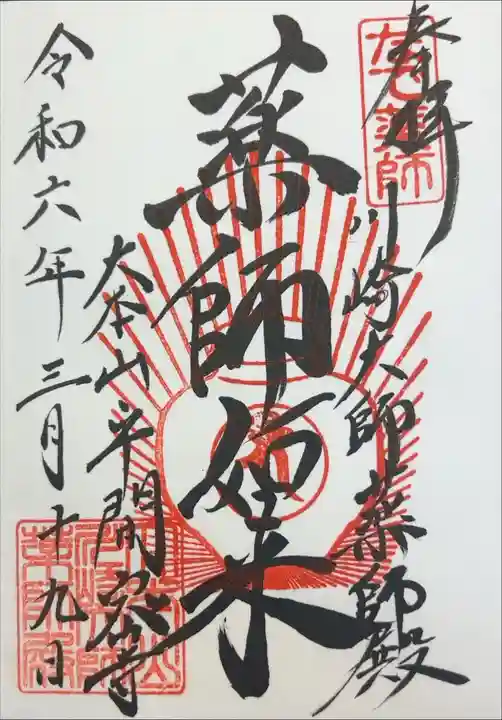 奉拝
川崎大師薬師殿
薬師如来
大本山平間寺
令和六年三月十九日